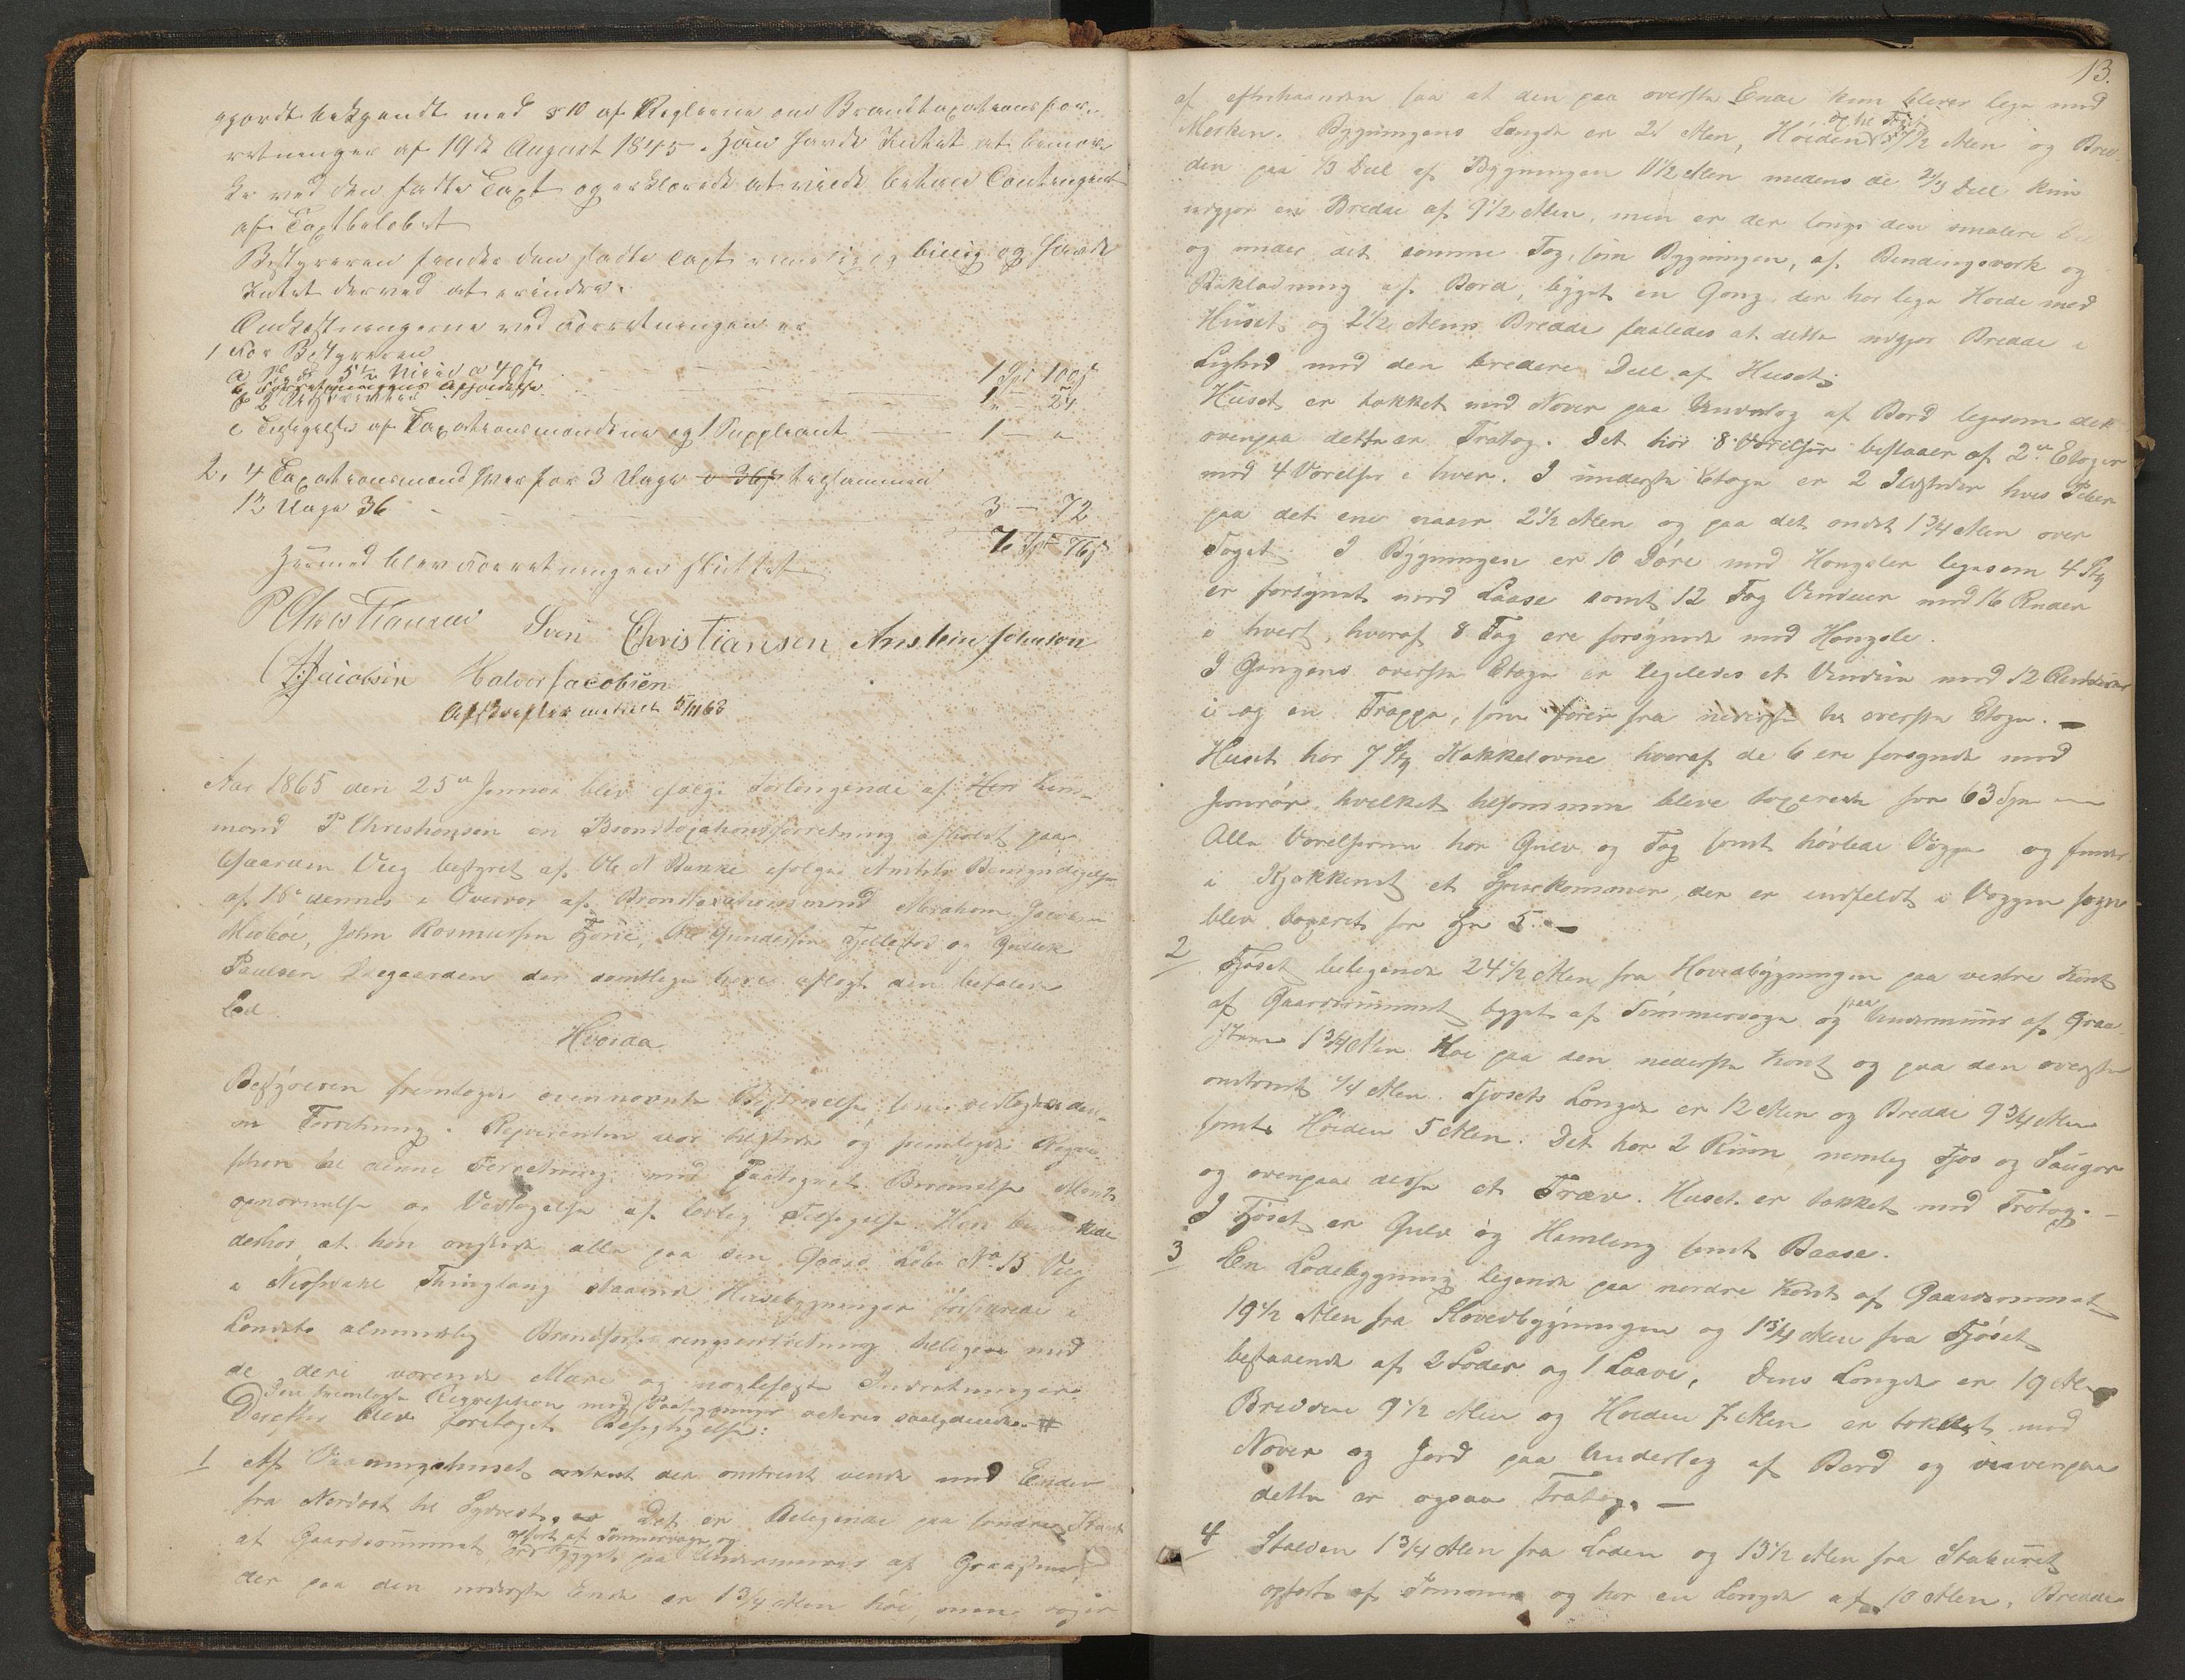 gjordt bekjendt med § 10 af Reglerne om Brandtaxationsfor-
retninger af 19de August 1845. Han havde Intet at bemær-
ke ved den satte Taxt og erklærede at ville betale Contingent
af Taxtbeløbet
Bestyreren fandt den satte Taxt rimelig og billig og havde
Intet derved at erindre.
Omkostningerne ved Forretningen er
1 For Bestyreren
a 5½ Miil a 40 s 1 Spd 100 s
b Forretningens Afholdelse 1 " - 24
c Tilsigelse af Taxationsmændene og 1 Suppleant 1 - "
2, 4 Taxationsmænd hver for 3 Dage a 36 s tilsammen
12 Dage 36 3 - 72
7 Spd 76 s
Hermed blev Forretningen sluttet
P Christiansen Sven Christiansen Anstein Johnson
A Jacobsen Halvor Jacobsen
Afskrevet meddelt 5/11 63
Aar 1865 den 25de Januar blev ifølge Forlangende af Herr Lens-
mand P Christiansen en Brandtaxationsforretning afholdt paa
Gaarden Veig bestyret af Ole N Bakke ifølge Amtets Bemyndigelse
af 16de dennes i Overvær af Brandtaxationsmænd Abraham Jacobsen
Midbøe, John Rasmussen Fjerie, Ole Gundersen Fjellestad og Gullik
Paulsen Ødegaarden der samtlige have aflagt den befalede
Eed
Hvorda
Bestyreren fremlagde ovennævnte Bestemmelse, som vedlægges den-
ne Forretning. Reqvirenten var tilstede og fremlagde Reqvi-
sition til denne Forretning med Paategnet Berammelse Mænds
opnævnelse og Vedtagelse af lovlig Tilsigelse. Han bemærkede
derhos, at han ønskede alle paa den Gaard Løbe No 15 Veig
i Thinglaug staaende Huusebygninger forsikrede i
Landets almindelig Brandforsikringsindretning tilligemed
de deri værende Mure og naglefaste Indretninger.
Den fremlagte Reqvisition med Paategninger acteres saalydende #
Derefter blev foretaget Besigtigelse:
1 Af Vaaningshuset omtrent der omtrent vende med Enden
fra Nordost til Sydvest, Det er Beligende paa søndre Kant
af Gaardsrummet opført af Tømmervægge og bygget paa Undermuur af Graasteen,
der paa den nederste Ende er 1¾ Alen høi, men tager
13.
af efterhaanden saa at den paa øverste Ende kun bliver lige med
Marken. Bygningens Længde er 21 Alen, Høiden op til Taget 7½ Alen og Bred-
den paa ⅓ Deel af Bygningen 11½ Alen medens de ⅔ Deel kun
udgjør en Bredde af 9½ Alen, men er der langs den smalere Deel
og under det samme Tag, som Bygningen, af Bindingsverk og
Beklædning af Bord, bygget en Gang, der har lige Høide med
Huset og 2½ Alens Bredde saaledes at dette udgjør Bredde i
Lighed med den bredere Deel af Huset.
Huset er tækket med Never paa Underlag af Bord ligesom det
ovenpaa dette er Trætag. Det har 8 Værelser bestaaer af 2de Etager
med 4 Værelser i hver. I underste Etage er 2 Ildsteder hvis Piber
paa det ene naaer 2½ Alen og paa det andet 1¾ Alen over
Taget. I Bygningen er 10 Døre med Hængsler ligesom 4 Stk
er forsynet med Laase samt 12 Fag Vinduer med 16 Ruder
i hvert, hvoraf 8 Fag ere forsynede med Hængsle.
I Gangens øverste Etage er ligeledes et Vindue med 12 Ruder
i og en Trappe, som fører fra nederste til øverste Etage. —
Huset har 7 Stk Kakkelovne hvoraf de 6 ere forsynede med
Jernrør, hvilket tilsammen bleve taxerede for 63 Spd
Alle Værelserne har Gulv og Tag samt høvlede Vægge og findes
i Kjøkkenet et Spisekammer, der er indfeldt i Væggen
blev taxeret for Spd 5. —
2 Fjøset beligende 24½ Alen fra Hovedbygningen paa vestre Kant
af Gaardsrummet bygget af Tømmervægge og paa Undermuur af Graa-
steen 1¾ Alen Høi paa den nederste Kant og paa den øverste
omtrent ¼ Alen. Fjøsets Længde er 12 Alen og Bredde 9¾ Alen
samt Høiden 5 Alen. Det har 2 Rum nemlig Fjøs og Saugar
og ovenpaa disse et Træv. Huset er tækket med Trætag. —
I Fjøset er Gulv og Hemling samt Baase.
3 En Ladebygning ligende paa nordre Kant af Gaardsrummet
19½ Alen fra Hovedbygningen og 1¾ Alen fra Fjøset
bestaaende af 2 Lader og 1 Laave, Dens Længde er 19 Alen
Bredden 9½ Alen og Høiden 7 Alen er tækket med
Never og Jord paa Underlag af Bord og ovenpaa
dette er ogsaa Trætag. —
4 Stalden 1¾ Alen fra Laden og 13½ Alen fra Stabuuret
opført af Tømmer og har en Længde af 10 Alen, Bredde